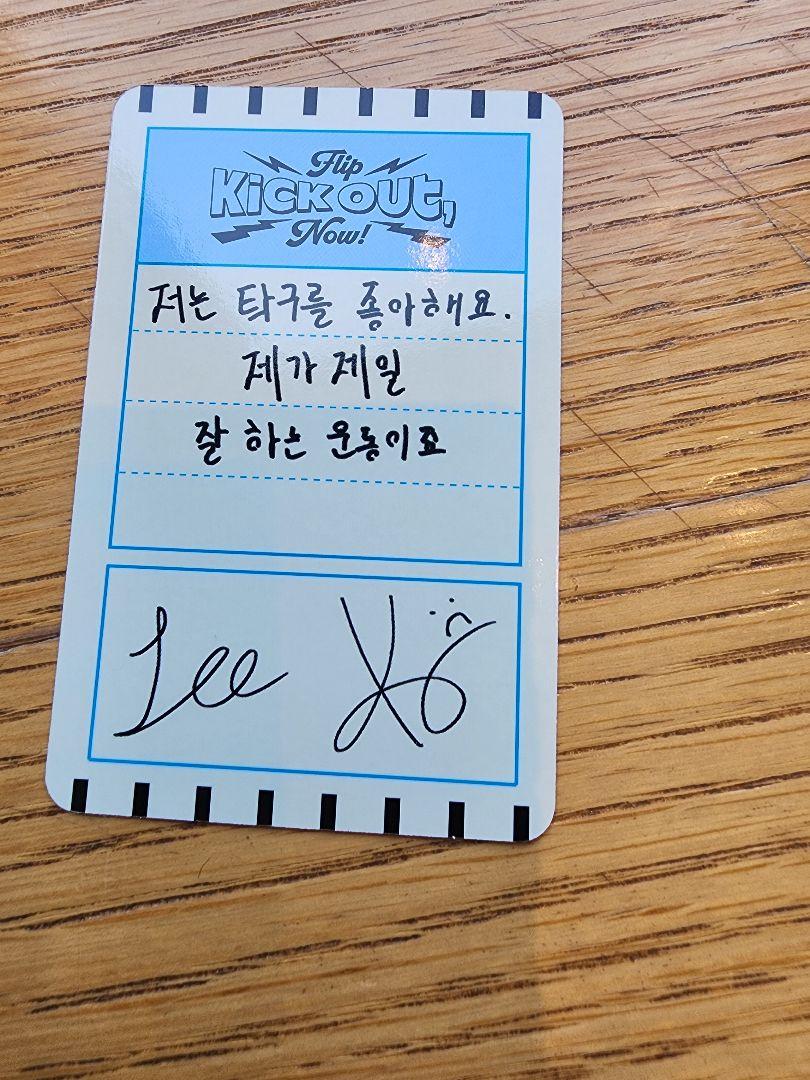 Flip
Kick out,
Now!
저는 탁구를 좋아해요.
제가 제일
잘 하는 운동이죠
Lee